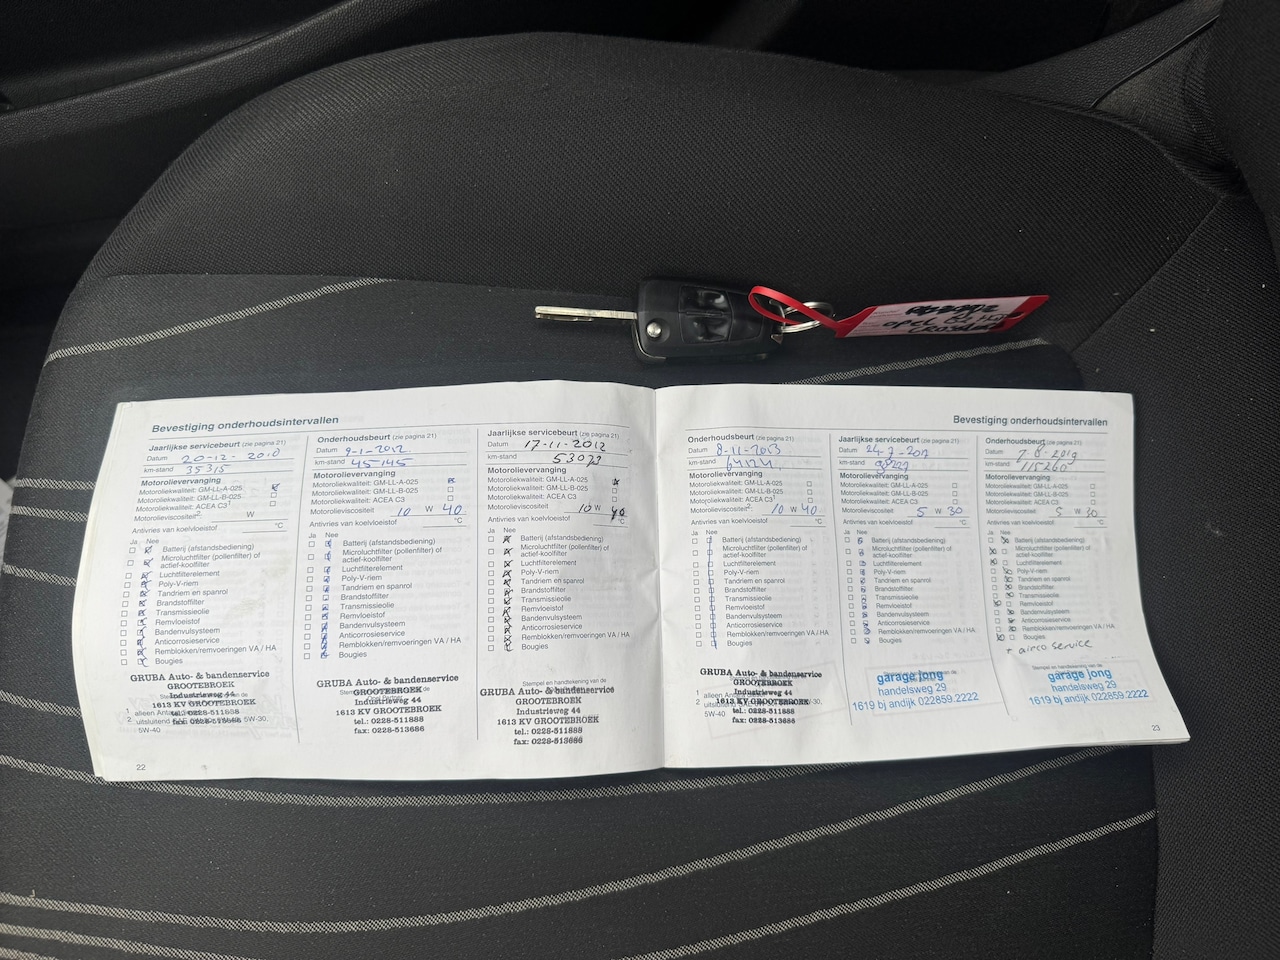 OPEL
Bevestiging onderhoudsintervallen
Jaarlijkse servicebeurt (zie pagina 21)
Datum 20-12-2010
km-stand 35315
Motorolievervanging
Motoroliekwaliteit: GM-LL-A-025
Motoroliekwaliteit: GM-LL-B-025
Motoroliekwaliteit: ACEA C3¹
Motorolieviscositeit²: W
Antivries van koelvloeistof °C
Ja Nee
Batterij (afstandsbediening)
Microluchtfilter (pollenfilter) of
actief-koolfilter
Luchtfilterelement
Poly-V-riem
Tandriem en spanrol
Brandstoffilter
Transmissieolie
Remvloeistof
Bandenvulsysteem
Anticorrosieservice
Remblokken/remvoeringen VA / HA
Bougies
GRUBA Auto- & bandenservice
GROOTEBROEK
Industrieweg 44
1613 KV GROOTEBROEK
tel.: 0228-511888
fax: 0228-513686
5W-40
22
Onderhoudsbeurt (zie pagina 21)
Datum 9-1-2012
km-stand 45145
Motorolievervanging
Motoroliekwaliteit: GM-LL-A-025
Motoroliekwaliteit: GM-LL-B-025
Motoroliekwaliteit: ACEA C3
Motorolieviscositeit 10 W 40
Antivries van koelvloeistof °C
Ja Nee
Batterij (afstandsbediening)
Microluchtfilter (pollenfilter) of
actief-koolfilter
Luchtfilterelement
Poly-V-riem
Tandriem en spanrol
Brandstoffilter
Transmissieolie
Remvloeistof
Bandenvulsysteem
Anticorrosieservice
Remblokken/remvoeringen VA / HA
Bougies
GROOTEBROEK
Industrieweg 44
1613 KV GROOTEBROEK
tel.: 0228-511888
fax: 0228-513686
Jaarlijkse servicebeurt (zie pagina 21)
Datum 17-11-2012
km-stand 53072
Motorolievervanging
Motoroliekwaliteit: GM-LL-A-025
Motoroliekwaliteit: GM-LL-B-025
Motoroliekwaliteit: ACEA C3
Motorolieviscositeit 10 W 40
Antivries van koelvloeistof °C
Ja Nee
Batterij (afstandsbediening)
Microluchtfilter (pollenfilter) of
actief-koolfilter
Luchtfilterelement
Poly-V-riem
Tandriem en spanrol
Brandstoffilter
Transmissieolie
Remvloeistof
Bandenvulsysteem
Anticorrosieservice
Remblokken/remvoeringen VA / HA
Bougies
GRUBA Auto- & bandenservice
GROOTEBROEK
Industrieweg 44
1613 KV GROOTEBROEK
tel.: 0228-511888
fax: 0228-513686
Bevestiging onderhoudsintervallen
Onderhoudsbeurt (zie pagina 21)
Datum 8-11-2013
km-stand
Motorolievervanging
Motoroliekwaliteit: GM-LL-A-025
Motoroliekwaliteit: GM-LL-B-025
Motoroliekwaliteit: ACEA C3
Motorolieviscositeit²: 10 W 40
Antivries van koelvloeistof °C
Ja Nee
Batterij (afstandsbediening)
Microluchtfilter (pollenfilter) of
actief-koolfilter
Luchtfilterelement
Poly-V-riem
Tandriem en spanrol
Brandstoffilter
Transmissieolie
Remvloeistof
Bandenvulsysteem
Anticorrosieservice
Remblokken/remvoeringen VA / HA
Bougies
GRUBA Auto- & bandenservice
GROOTEBROEK
Industrieweg 44
1613 KV GROOTEBROEK
tel.: 0228-511888
fax: 0228-513686
5W-40
Jaarlijkse servicebeurt (zie pagina 21)
Datum
km-stand
Motorolievervanging
Motoroliekwaliteit: GM-LL-A-025
Motoroliekwaliteit: GM-LL-B-025
Motoroliekwaliteit: ACEA C3
Motorolieviscositeit: 5 W 30
Antivries van koelvloeistof °C
Ja Nee
Batterij (afstandsbediening)
Microluchtfilter (pollenfilter) of
actief-koolfilter
Luchtfilterelement
Poly-V-riem
Tandriem en spanrol
Brandstoffilter
Transmissieolie
Remvloeistof
Bandenvulsysteem
Anticorrosieservice
Remblokken/remvoeringen VA / HA
Bougies
garage jong
handelsweg 29
1619 bj andijk 022859.2222
Onderhoudsbeurt (zie pagina 21)
Datum 7-8-2019
km-stand 115260
Motorolievervanging
Motoroliekwaliteit: GM-LL-A-025
Motoroliekwaliteit: GM-LL-B-025
Motoroliekwaliteit: ACEA C3
Motorolieviscositeit 5 W 30
Antivries van koelvloeistof °C
Ja Nee
Batterij (afstandsbediening)
Microluchtfilter (pollenfilter) of
actief-koolfilter
Luchtfilterelement
Poly-V-riem
Tandriem en spanrol
Brandstoffilter
Transmissieolie
Remvloeistof
Bandenvulsysteem
Anticorrosieservice
Remblokken/remvoeringen VA / HA
Bougies
+ airco service
Stempel en handtekening van de
garage jong
handelsweg 29
1619 bj andijk 022859.2222
23